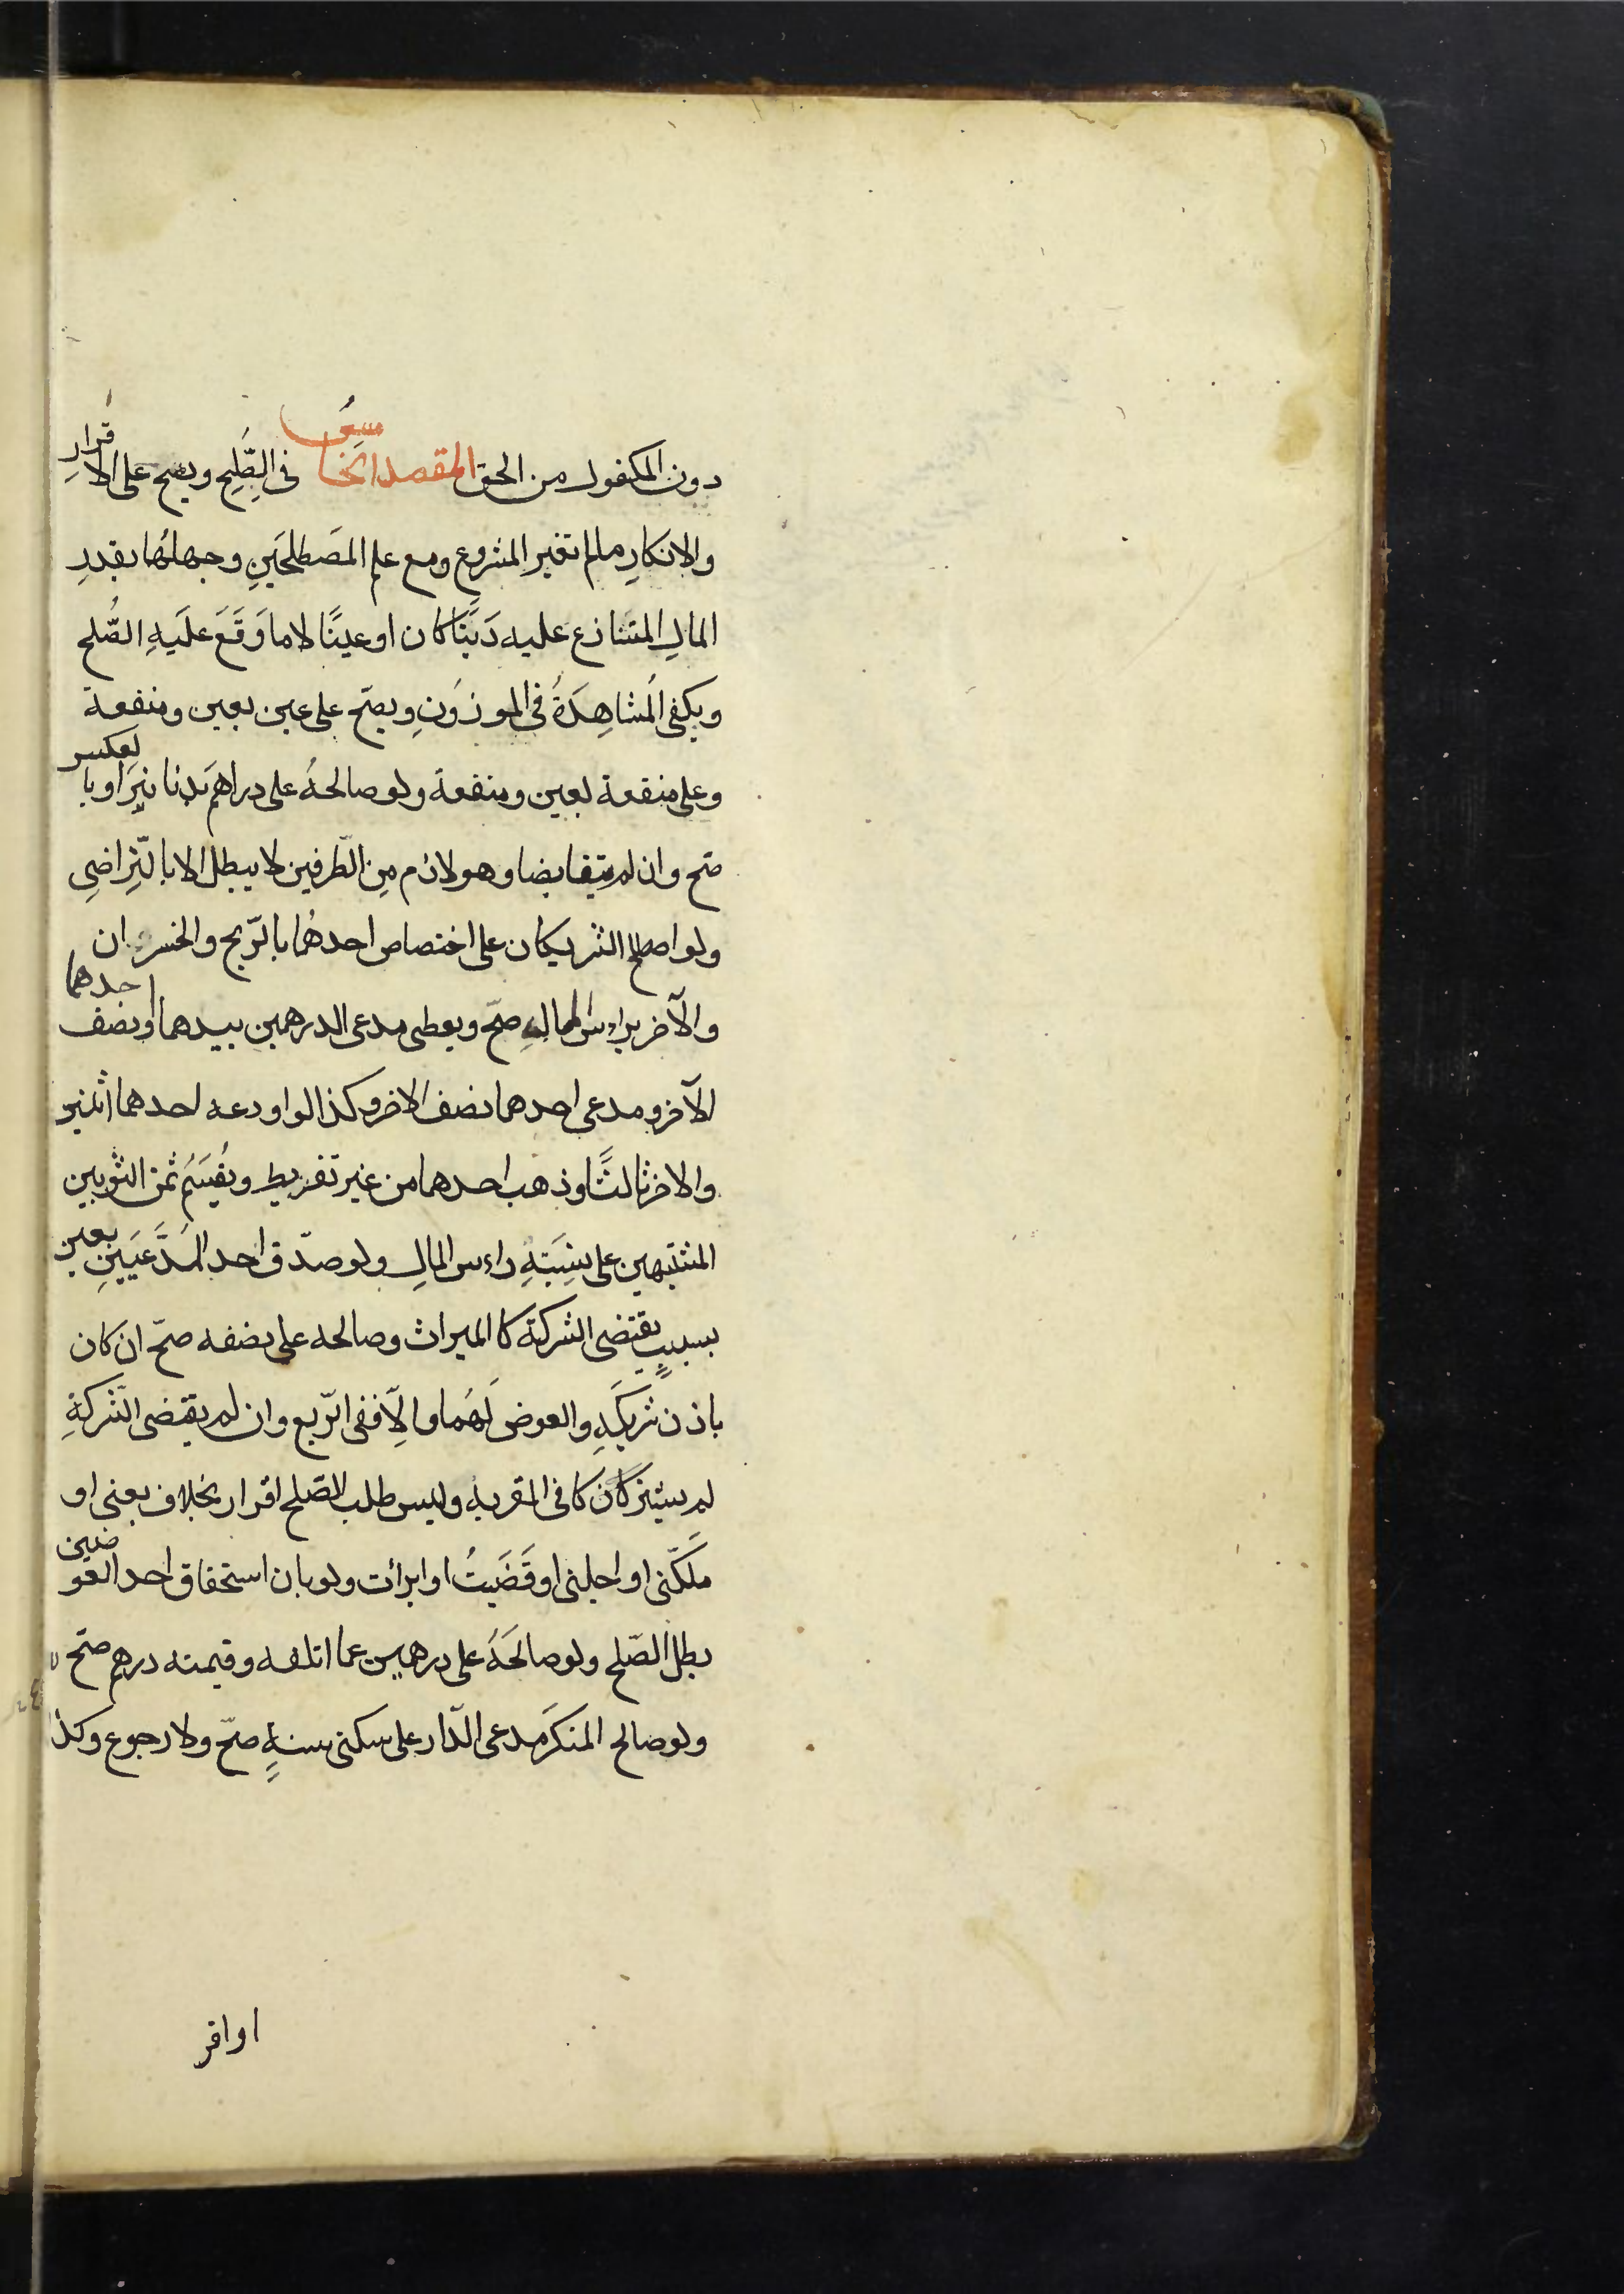 دون المكفول من الحق المقصد الخامسُ فى الصُّلحِ ويصح على الاقرارِ
والانكارِ مالم تغير المشروع ومع علم المصَطلحَينِ وجهالتهُما بقدرِ
المالِ المتنازع عليه دَينًا كان او عينًا لا ما وَقَعَ علَيهِ الصُّلح
ويكفى المُشاهِدَةُ فى الموزوُنِ ويصحّ على عين بعين ومنفعة
وعلى منفعة بعين ومنفعة ولو صالحهُ على دراهمَ بدنانيَر او بالعكس
صحّ وان لم يتقابضا وهو لازم مِن الطّرفين لا يبطل الا بالتّراضِى
ولو اصطلح الشريكان على اختصاص احدهُما بالرّبح والخسران
والآخر براءس المالِ صحّ ويعطى مدعى الدرهمين بيدهما احدهما ونصف
الآخر ومدعى احدهما نصف الاخر وكذا لو اودعه احدهما اثنين
والاخر ثالثًا وذهب احدهما من غير تفريط ويُقسَمُ ثمن الثوبين
المشتبهين على نِسَبَتِهِ راءس المالِ ولو صدّق احد المدَّعيَينِ بعين
بسببٍ يقتضى الشركة كالميراث وصالحه على نصفه صحّ ان كان
باذن شريَكِهِ والعوض لَهُما والِاّ ففى الرّبع وان لم يقتضى الشّركةِ
لم يشتركان كا فى المقر به وليس طلب الصّلح اقرار بخلاف بعنى او
ملكّنى او اجلنى او قَضَيتُ او ابرائت ولو بان استحقاق احد العوضين
بطل الصّلح ولو صالحَهُ على درهمين عما اتلفه وقيمته درهم صحّ
ولو صالح المنكرَ مدعى الدّار على سكنى سنةٍ صحّ ولا رجوع وكذا
او اقر